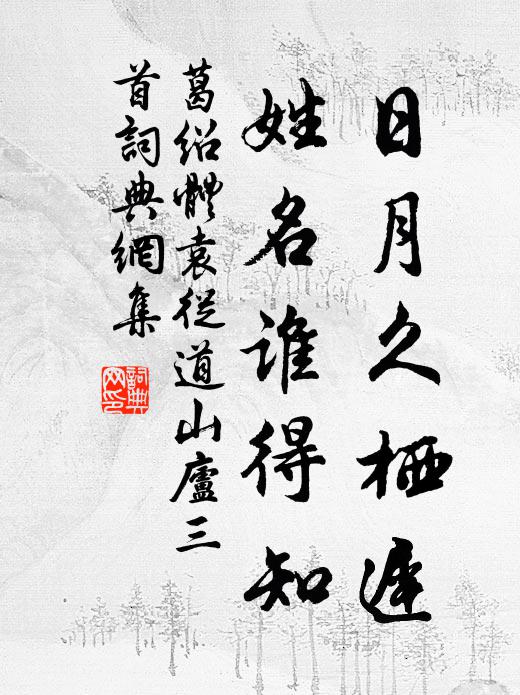 日月久栖遲
姓名誰得知
葛紹體袁從道山廬三
首詞典網集
詞典
网印